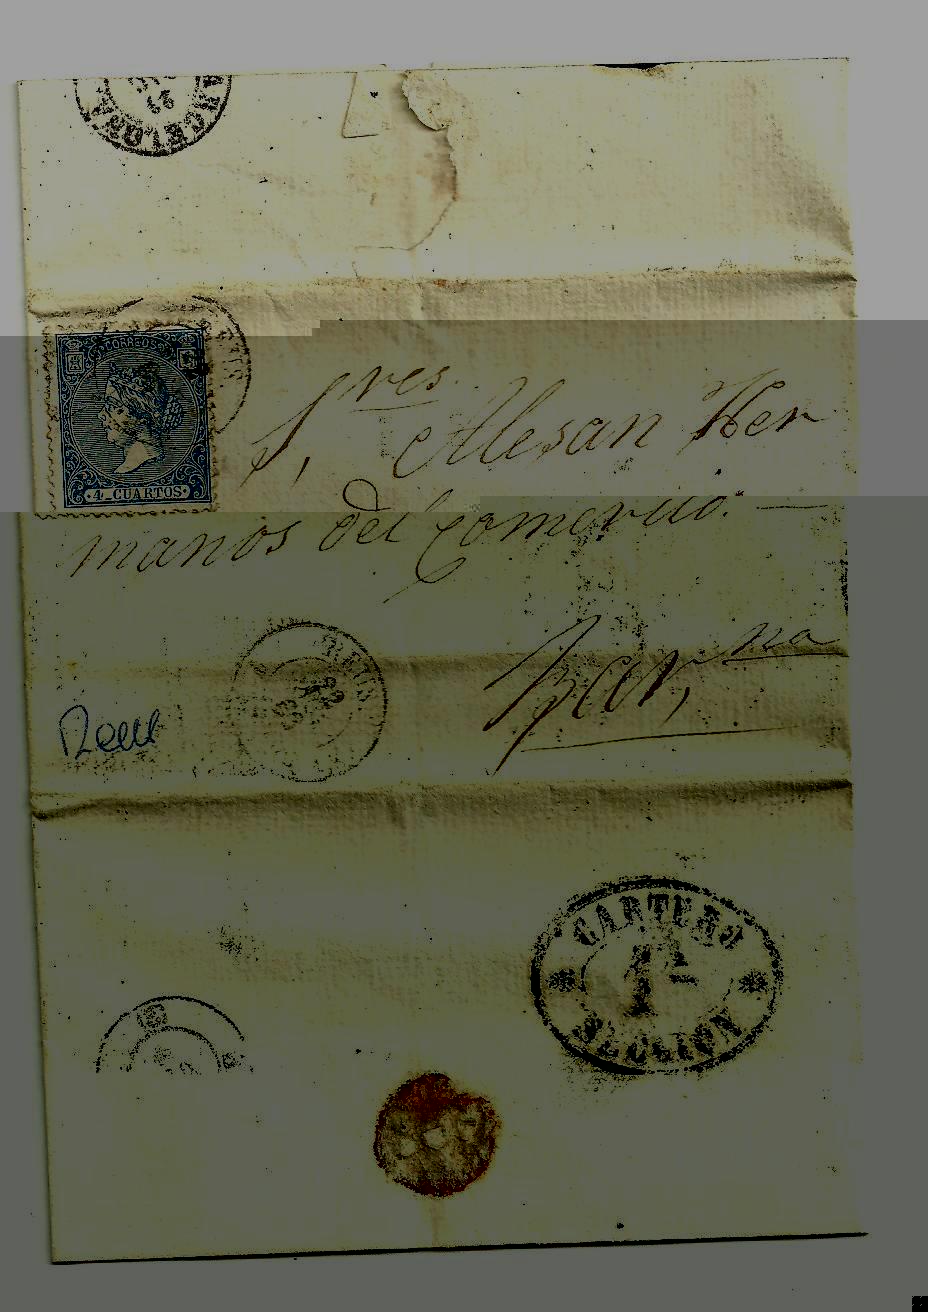 BARCELONA
CORREOS
4 CUARTOS
S.res Alesan Her
manos del Comercio. —
Bar,na
REUS
Reus
CARTERO
1ª
SECCION